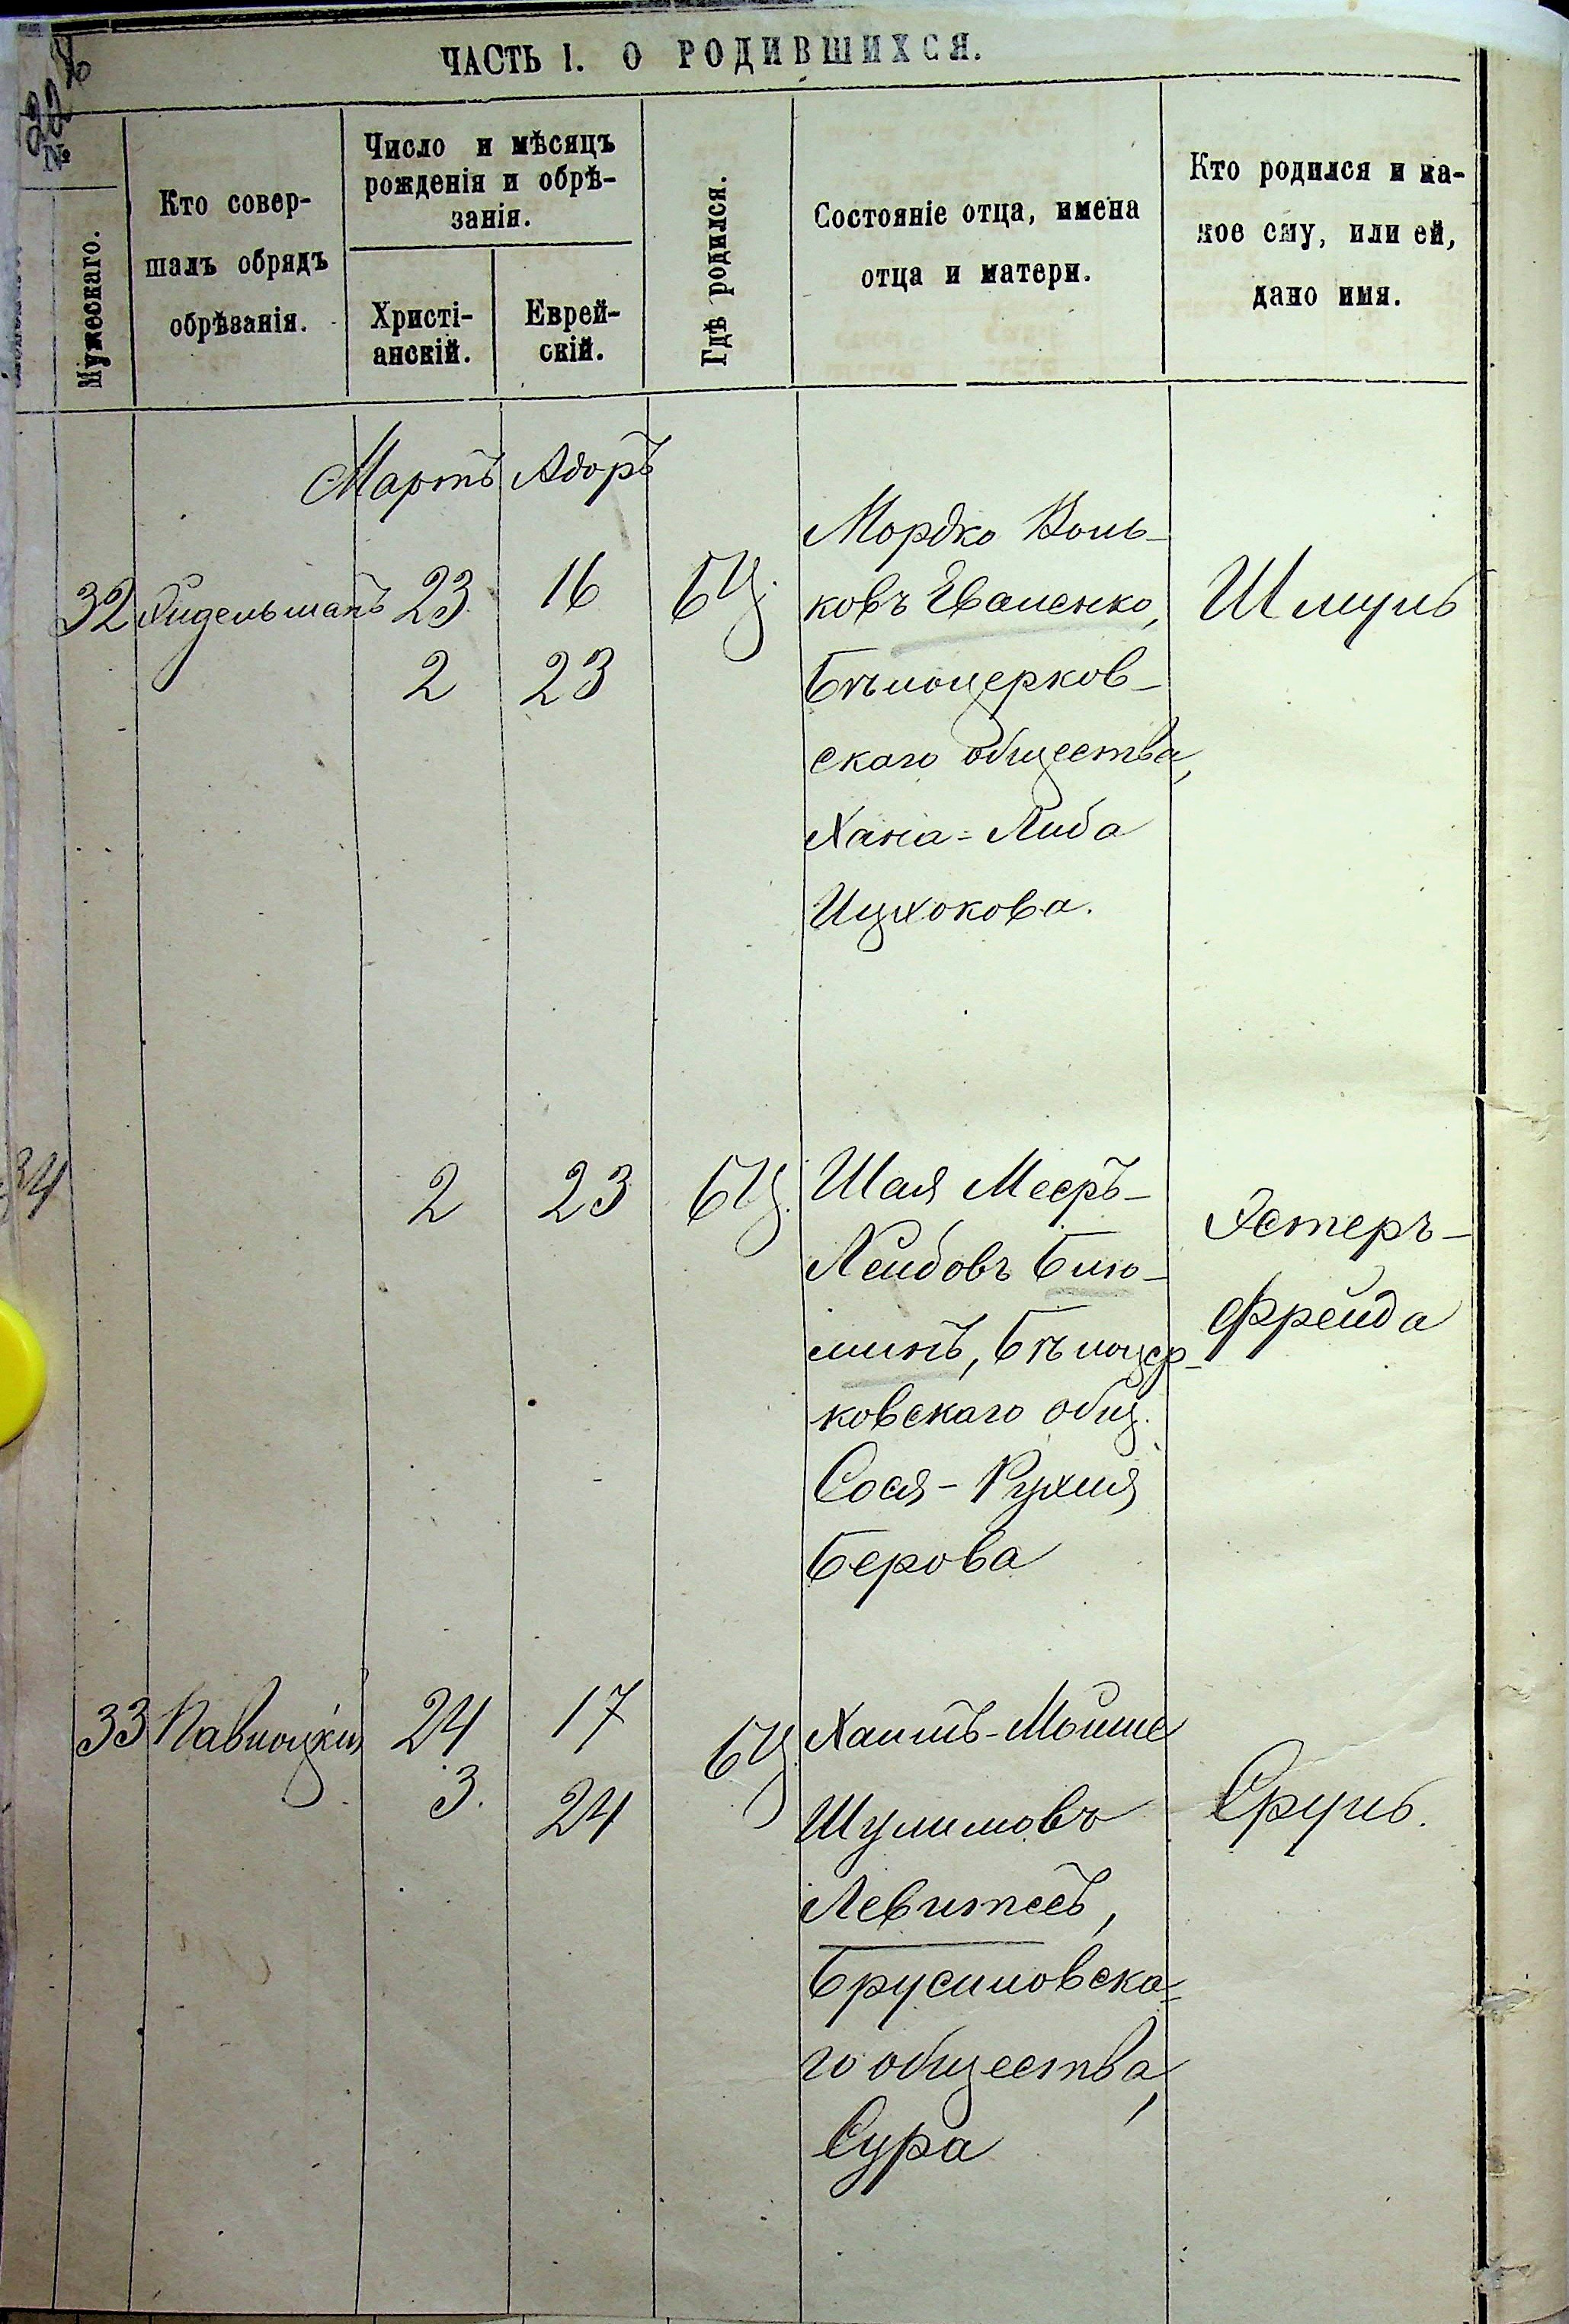 ЧАСТЬ I. О РОДИВШИХСЯ.
№
Мужескаго.
Кто совер-
шалъ обрядъ
обрѣзанія.
Число и мѣсяцъ
рожденія и обрѣ-
занія.
Христі-
анскій.
Еврей-
скій.
Гдѣ родился.
Состояніе отца, имена
отца и матери.
Кто родился и ка-
кое ему, или ей,
дано имя.
Мартъ Адоръ
32 23 16 БЦ.
2 23
Мордко Воль-
ковъ Еваленко,
Бѣлоцерков-
скаго общества,
Хана-Либа
Ицхокова.
Шмуль
34 2 23 БЦ.
Шая Мееръ-
Лейбовъ Блю-
минъ, Бѣлоцер-
ковскаго общ.
Сося-Рухля
Берова
Эстеръ-
Фрейда
33 Павлоцкій 24 17 БЦ.
3. 24
Хаимъ-Мойше
Шулимовъ
Левитесъ,
Брусиловска-
го общества,
Сура
Сруль.